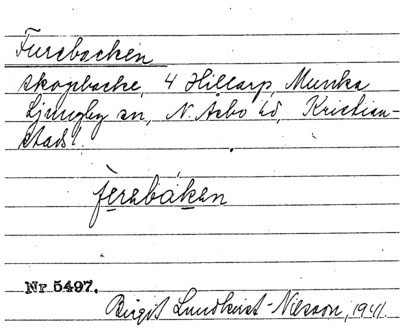 Furebacken
skogsbacke, 4 Hillarp, Munka
Ljungby sn, N. Asbo hd, Kristian-
stads l.
ferebáken
Nr 5497.
Birgit Lundkvist-Nilsson, 1941.